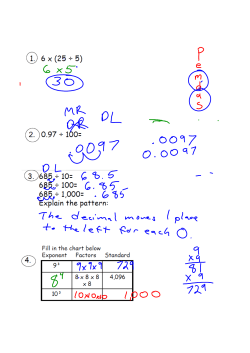 1. 6 x (25 ÷ 5)
6 x 5
30
P
e
m
d
a
s
MR
DL
2. 0.97 ÷ 100=
.0097
.0097
0.0097
DL
3. 685 ÷ 10= 68.5
685 ÷ 100= 6.85
685 ÷ 1,000= .685
Explain the pattern:
The decimal moves 1 place
to the left for each 0.
4. Fill in the chart below
Exponent Factors Standard
9³ 9x9x9 729
8⁴ 8 x 8 x 8 x 8 4,096
10³ 10x10x10 1,000
9
x 9
81
x 9
729